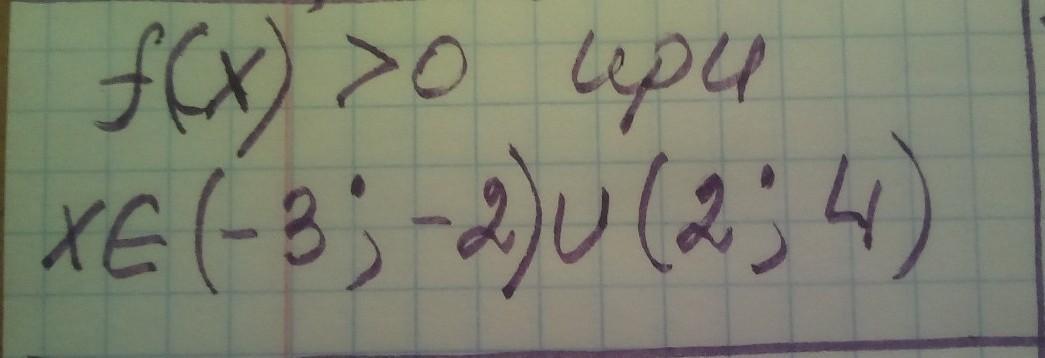 f(x) > 0 при
x∈(-3; -2)∪(2; 4)